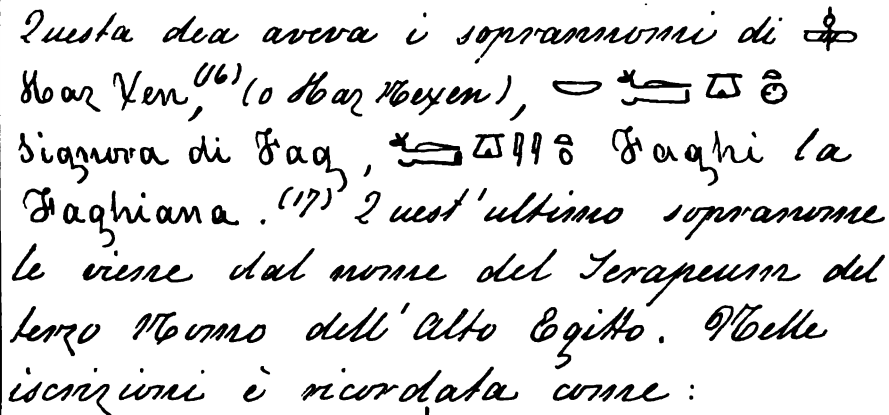 Questa dea aveva i soprannomi di
Har Xen,(16) (o Har Mexen),
Signora di Fag, Faghi la
Faghiana.(17) Quest'ultimo sopranome
le viene dal nome del Serapeum del
terzo Nomo dell'Alto Egitto. Nelle
iscrizioni è ricordata come: